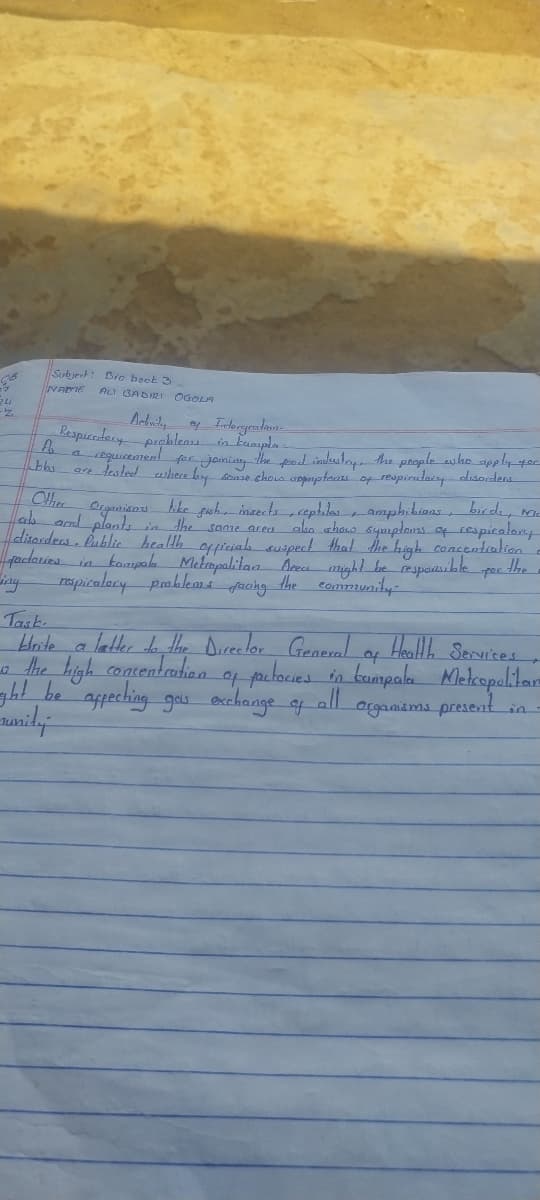 Subject: Bio book 3
NAME ALI BADIRI OGOLA
Activity of Intergration
Respiratory problems in Kampla
As a requirement for joining the food industry, the people who apply for
jobs are tested whereby some show symptoms of respiratory disorders
Other Organisms like fish, insects, reptiles, amphibians, birds,
and plants in the same area also show symptoms of respiratory
disorders. Public health officials suspect that the high concentration
factories in Kampala Metropolitan Area might be responsible for the
respiratory problems facing the community
Task.
Write a letter to the Director General of Health Services,
the high concentration of factories in Kampala Metropolitan
ght be affecting gas exchange of all organisms present in
munity